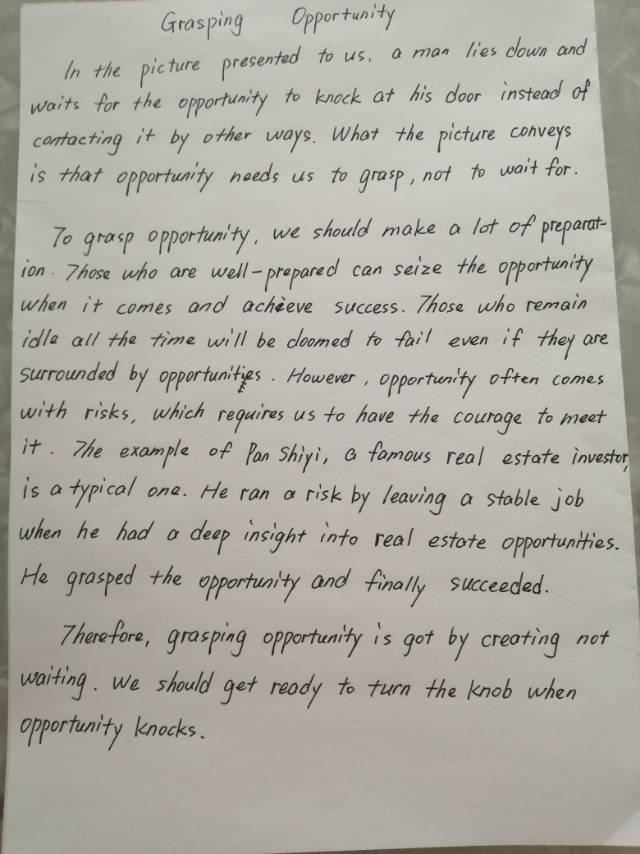 Grasping Opportunity
In the picture presented to us, a man lies down and
waits for the opportunity to knock at his door instead of
contacting it by other ways. What the picture conveys
is that opportunity needs us to grasp, not to wait for.
To grasp opportunity, we should make a lot of preparat-
ion. Those who are well-prepared can seize the opportunity
when it comes and achieve success. Those who remain
idle all the time will be doomed to fail even if they are
surrounded by opportunities. However, opportunity often comes
with risks, which requires us to have the courage to meet
it. The example of Pan Shiyi, a famous real estate investor,
is a typical one. He ran a risk by leaving a stable job
when he had a deep insight into real estate opportunities.
He grasped the opportunity and finally succeeded.
Therefore, grasping opportunity is got by creating not
waiting. We should get ready to turn the knob when
opportunity knocks.